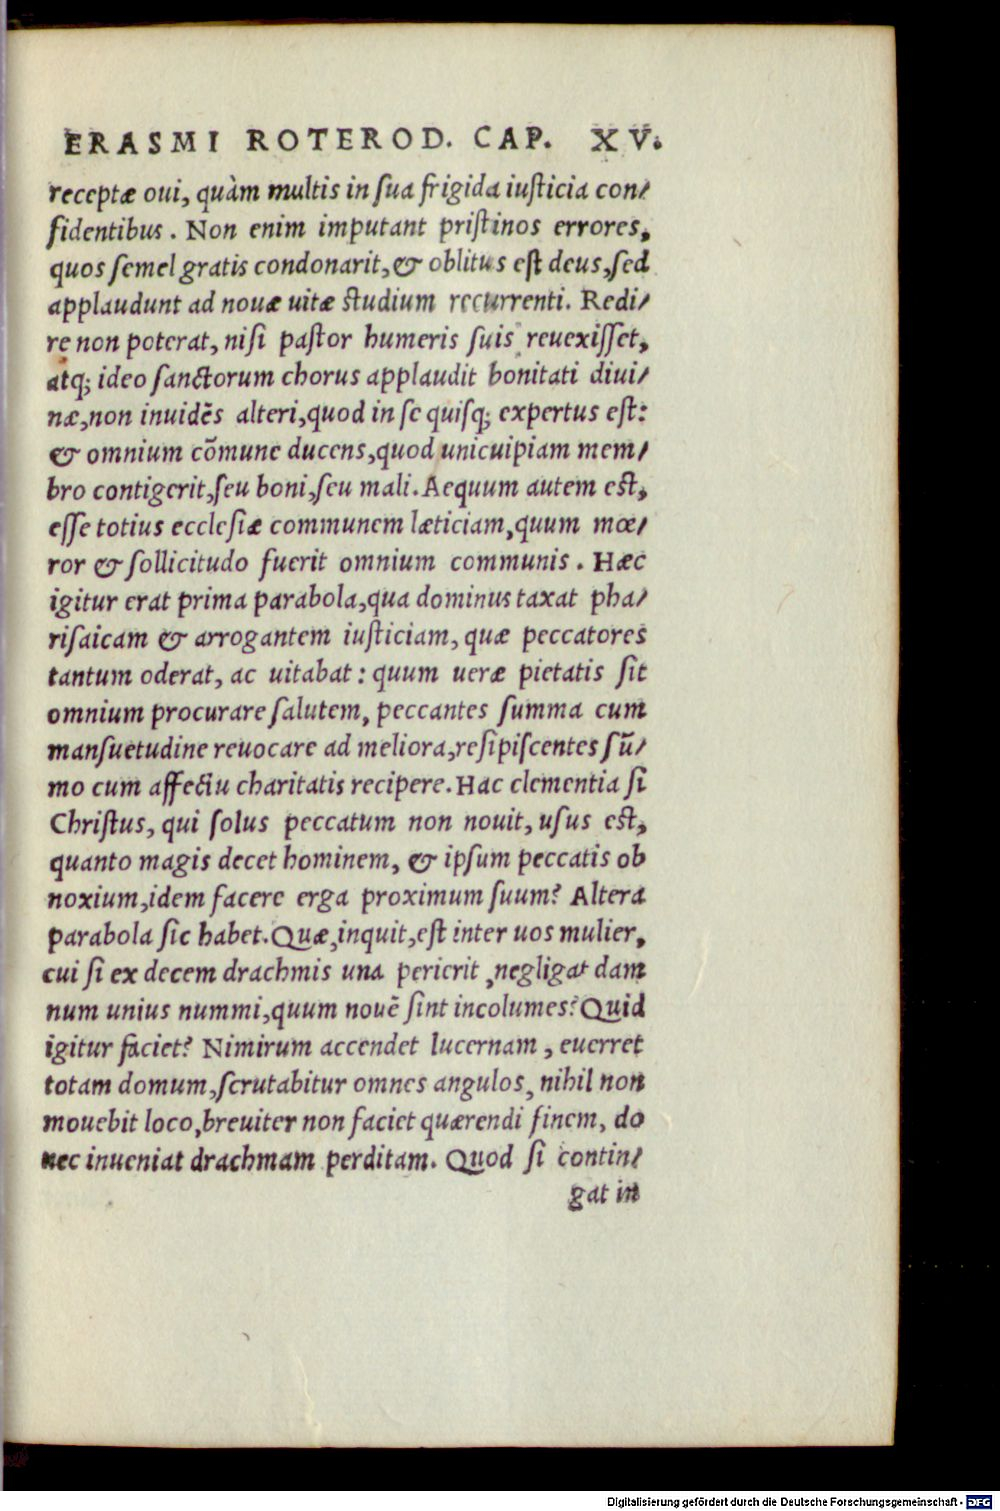 ERASMI ROTEROD. CAP. XV.
receptæ oui, quàm multis in sua frigida iusticia con/
fidentibus. Non enim imputant pristinos errores,
quos semel gratis condonarit, & oblitus est deus, sed
applaudunt ad nouæ uitæ studium recurrenti. Redi/
re non poterat, nisi pastor humeris suis reuexisset,
atq; ideo sanctorum chorus applaudit bonitati diui/
næ, non inuidēs alteri, quod in se quisq; expertus est:
& omnium cōmune ducens, quod unicuipiam mem/
bro contigerit, seu boni, seu mali. Aequum autem est,
esse totius ecclesiæ communem læticiam, quum mœ/
ror & sollicitudo fuerit omnium communis. Hæc
igitur erat prima parabola, qua dominus taxat pha/
risaicam & arrogantem iusticiam, quæ peccatores
tantum oderat, ac uitabat: quum ueræ pietatis sit
omnium procurare salutem, peccantes summa cum
mansuetudine reuocare ad meliora, resipiscentes sū/
mo cum affectu charitatis recipere. Hac clementia si
Christus, qui solus peccatum non nouit, usus est,
quanto magis decet hominem, & ipsum peccatis ob
noxium, idem facere erga proximum suum? Altera
parabola sic habet. Quæ, inquit, est inter uos mulier,
cui si ex decem drachmis una perierit, negligat dam
num unius nummi, quum nouē sint incolumes? Quid
igitur faciet? Nimirum accendet lucernam, euerret
totam domum, scrutabitur omnes angulos, nihil non
mouebit loco, breuiter non faciet quærendi finem, do
nec inueniat drachmam perditam. Quod si contin/
gat in
Digitalisierung gefördert durch die Deutsche Forschungsgemeinschaft - DFG